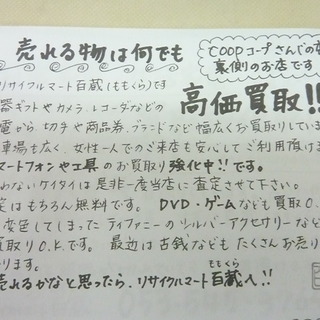 売れる物は何でも
COOPコープさんじの
裏側のお店です
リサイクルマート百蔵(ももくら)です
高価買取!!
器ギフトやカメラ、レコーダなどの
電から、切手や商品券、ブランドなど幅広くお買取りしていま
車場も広く、女性一人でのご来店も安心してご利用頂けま
マートフォンや工具のお買取り強化中!!です。
わないケイタイは是非一度当店に査定させて下さい。
定はもちろん無料です。DVD・ゲームなども買取O.
変色してしまったティファニーのシルバーアクセサリーなど
買取りO.K.です。最近は古銭などもたくさんお売り
ります。
売れるかなと思ったら、リサイクルマート百蔵へ!!
ももくら